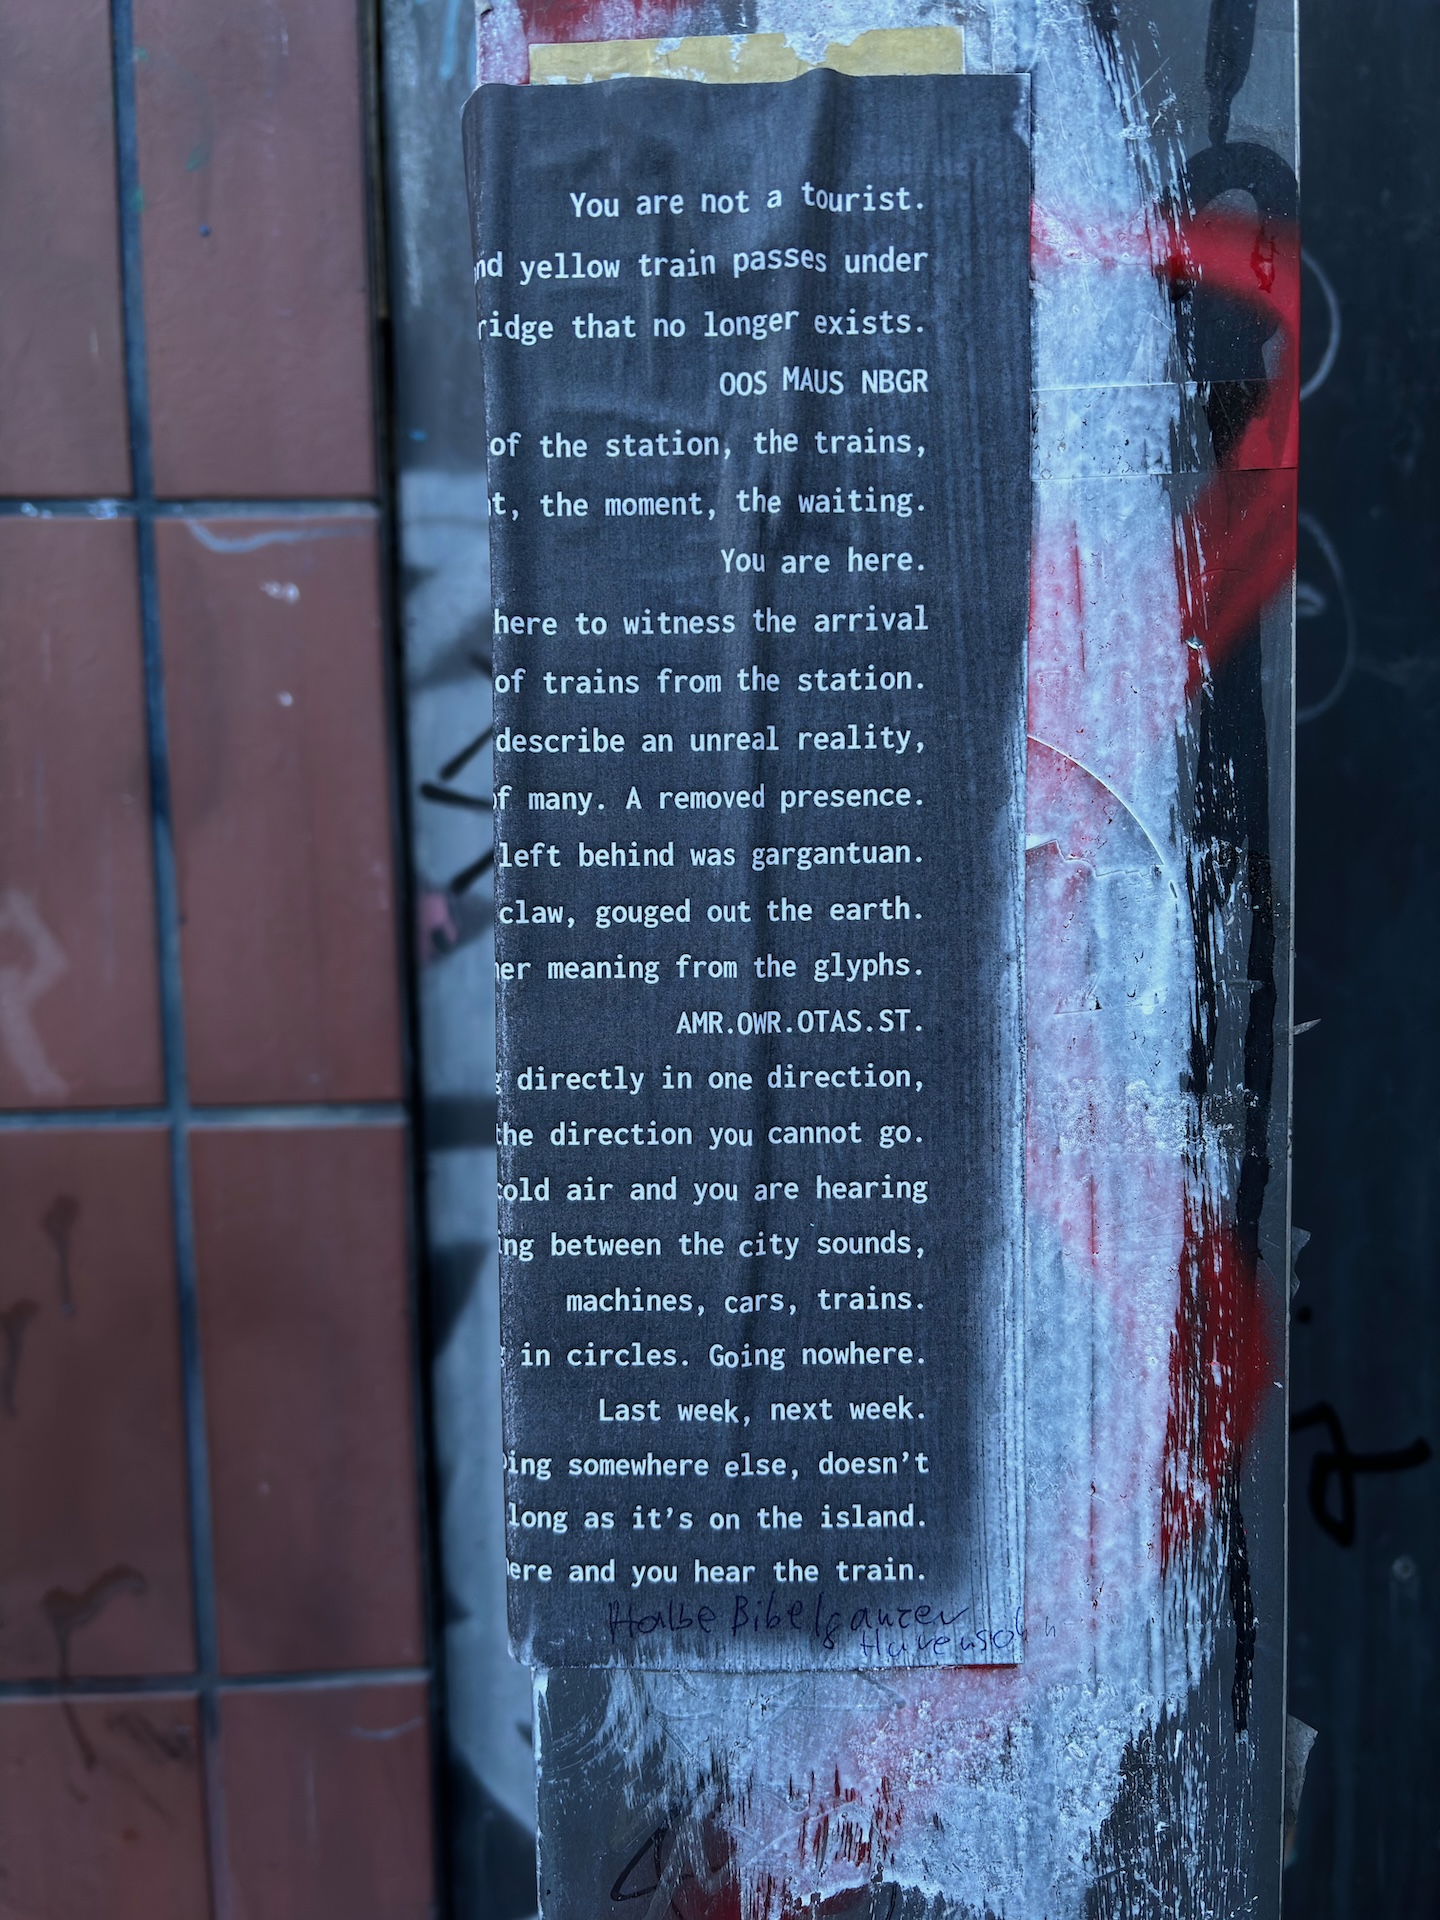 You are not a tourist.
nd yellow train passes under
ridge that no longer exists.
OOS MAUS NBGR
of the station, the trains,
t, the moment, the waiting.
You are here.
here to witness the arrival
of trains from the station.
describe an unreal reality,
of many. A removed presence.
left behind was gargantuan.
claw, gouged out the earth.
er meaning from the glyphs.
AMR.OWR.OTAS.ST.
directly in one direction,
the direction you cannot go.
cold air and you are hearing
ing between the city sounds,
machines, cars, trains.
in circles. Going nowhere.
Last week, next week.
oing somewhere else, doesn't
long as it's on the island.
ere and you hear the train.
Halbe Bibel ganzer
Hurensohn